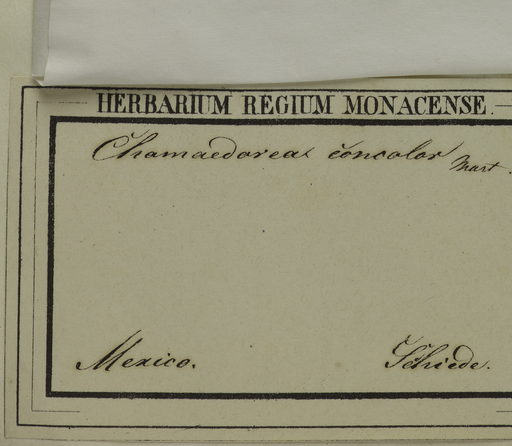 HERBARIUM REGIUM MONACENSE.
Chamaedorea concolor Mart.
Mexico. Schiede.